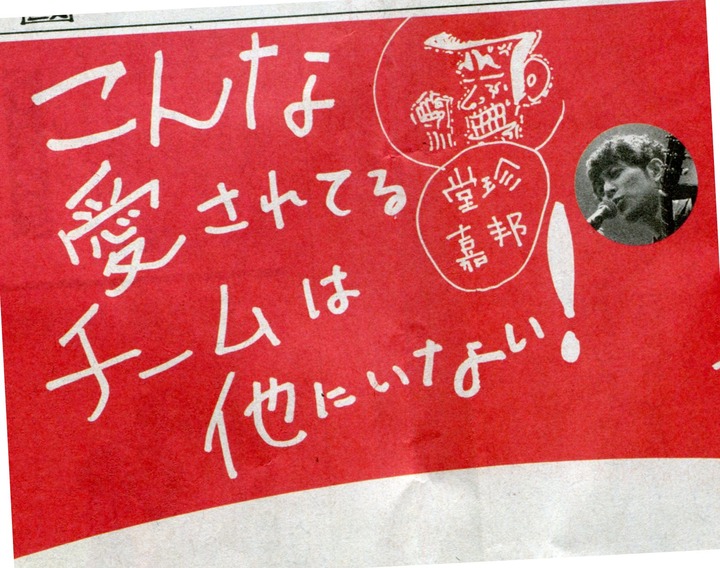 こんな
愛されてる
チームは
他にいない!
堂珍
嘉邦